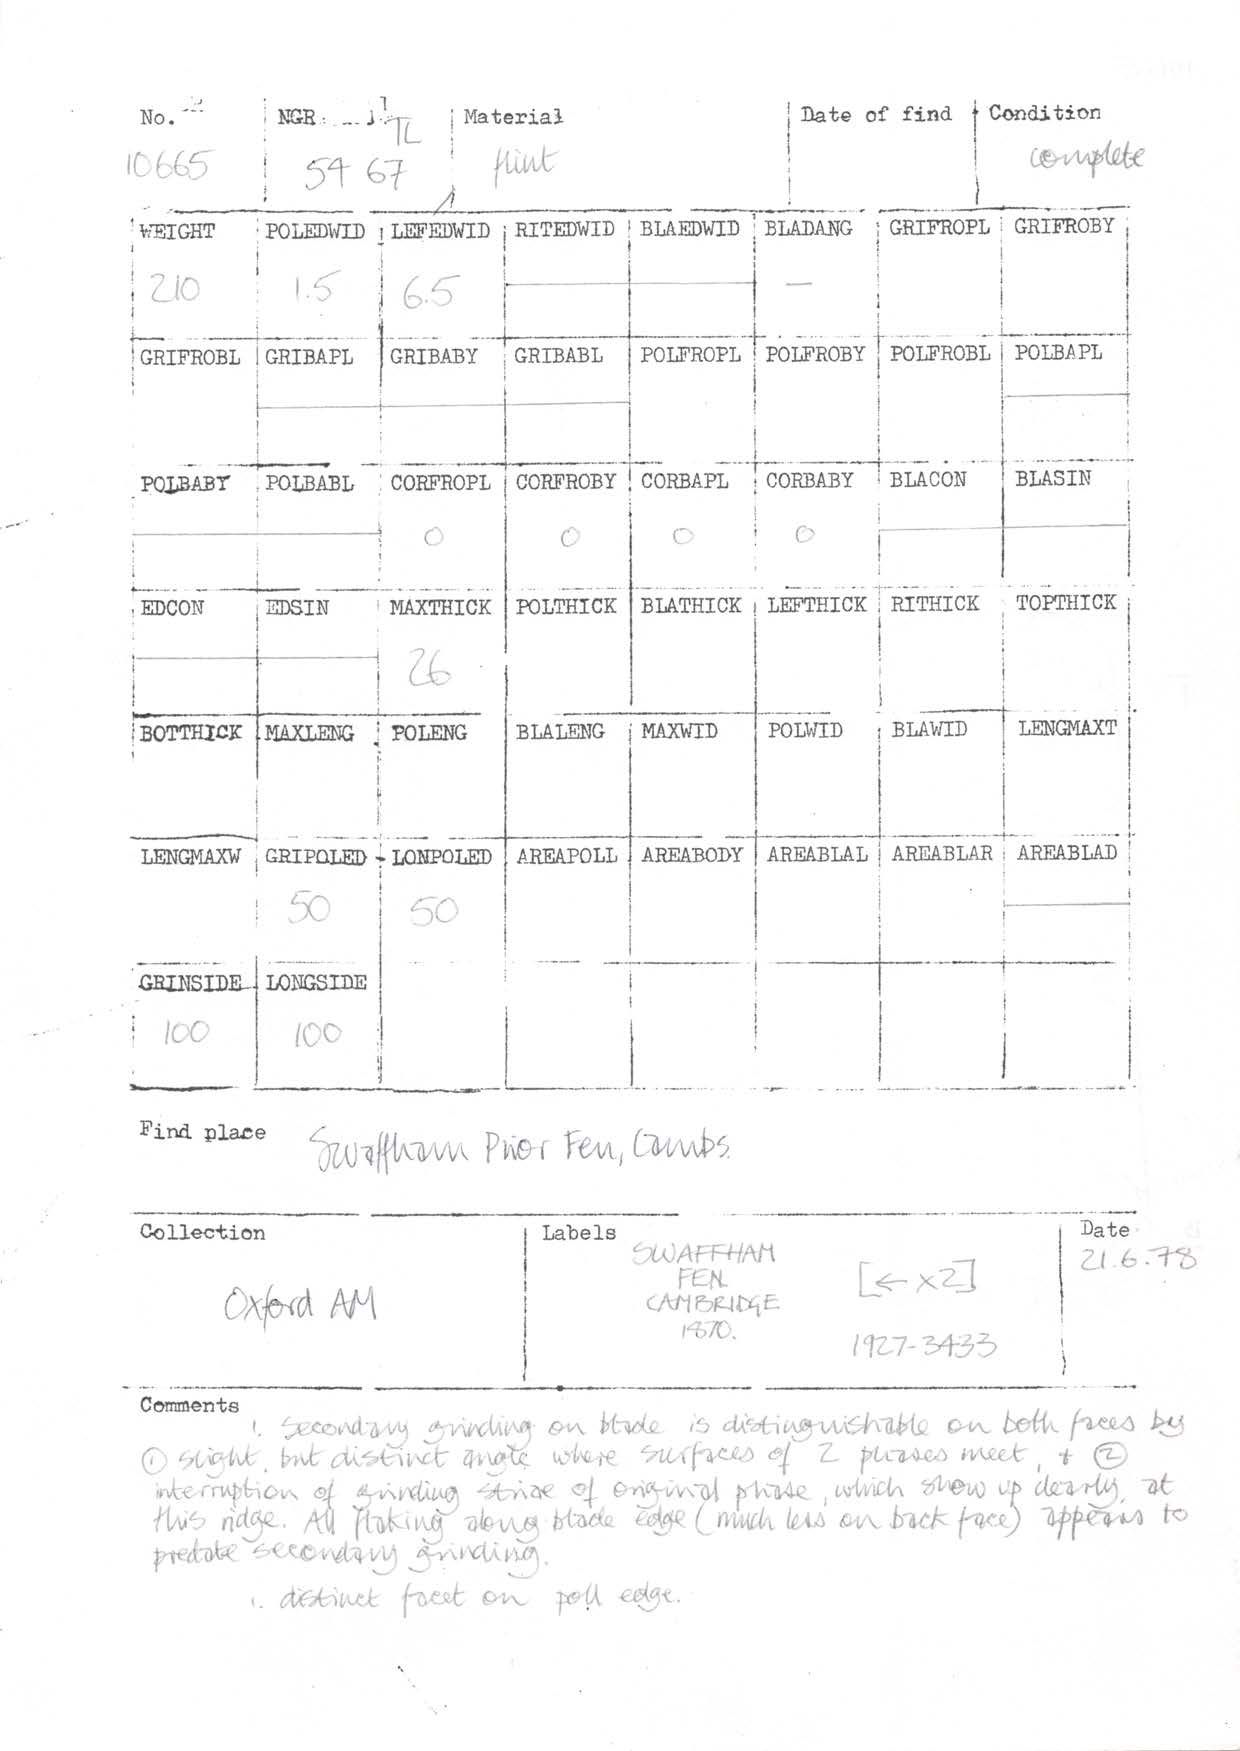 No. NGR TL Material Date of find Condition
10665 54 67 flint complete
WEIGHT POLEDWID LEFEDWID RITEDWID BLAEDWID BLADANG GRIFROPL GRIFROBY
210 1.5 6.5 —
GRIFROBL GRIBAPL GRIBABY GRIBABL POLFROPL POLFROBY POLFROBL POLBAPL
POLBABY POLBABL CORFROPL CORFROBY CORBAPL CORBABY BLACON BLASIN
0 0 0 0
EDCON EDSIN MAXTHICK POLTHICK BLATHICK LEFTHICK RITHICK TOPTHICK
26
BOTTHICK MAXLENG POLENG BLALENG MAXWID POLWID BLAWID LENGMAXT
LENGMAXW GRIPOLED LONPOLED AREAPOLL AREABODY AREABLAL AREABLAR AREABLAD
50 50
GRINSIDE LONGSIDE
100 100
Find place Swaffham Prior Fen, Cambs.
Collection Labels Date
Oxford AM
SWAFFHAM
FEN
CAMBRIDGE
1870.
[← x2]
1927-3433
21.6.78
Comments
1. Secondary grinding on blade is distinguishable on both faces by
① slight, but distinct angle where surfaces of 2 phases meet, + ②
interruption of grinding striae of original phase, which show up clearly, at
this ridge. All flaking along blade edge (much less on back face) appears to
predate secondary grinding.
1. distinct facet on poll edge.